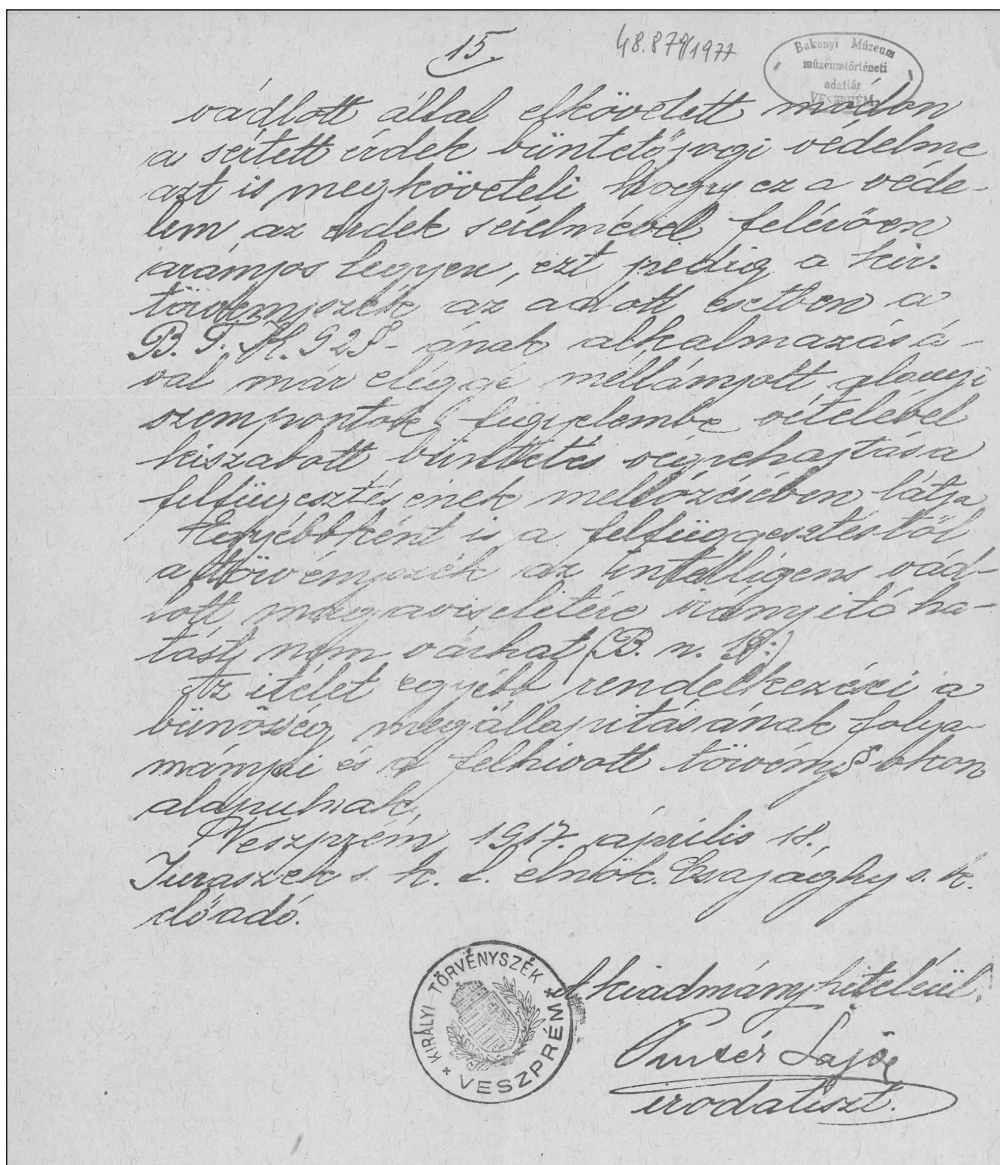 15
48.879/1977
Bakonyi Múzeum
múzeumtörténeti
adattár
VESZPRÉM
vádlott által elkövetett módon
a sértett érdek büntetőjogi védelme
azt is megköveteli hogy ez a véde-
lem az érdek sérelmével felérően
arányos legyen, ezt pedig a kir.
törvényszék az adott esetben a
B. T. K. 92§-ának alkalmazásá-
val már eléggé méltányolt alanyi
szempontok figyelembe vételével
kiszabott büntetés végrehajtása
felfügesztésének mellőzésében látja
Egyébként is a felfüggesztéstől
a törvényszék az intelligens vád-
lott magaviseletére irányító ha-
tást nem várhat (B. n. 1§.)
Az itélet egyébb rendelkezései a
bünösség megállapitásának folyo-
mányai és a felhivott törvény§okon
alapulnak,
Veszprém, 1917. április 18.,
Juraszek s. k. h. elnök. Csajághy s. k.
előadó.
KIRÁLYI TÖRVÉNYSZÉK
VESZPRÉM
A kiadmány hiteléül.
Lajos
irodatiszt.